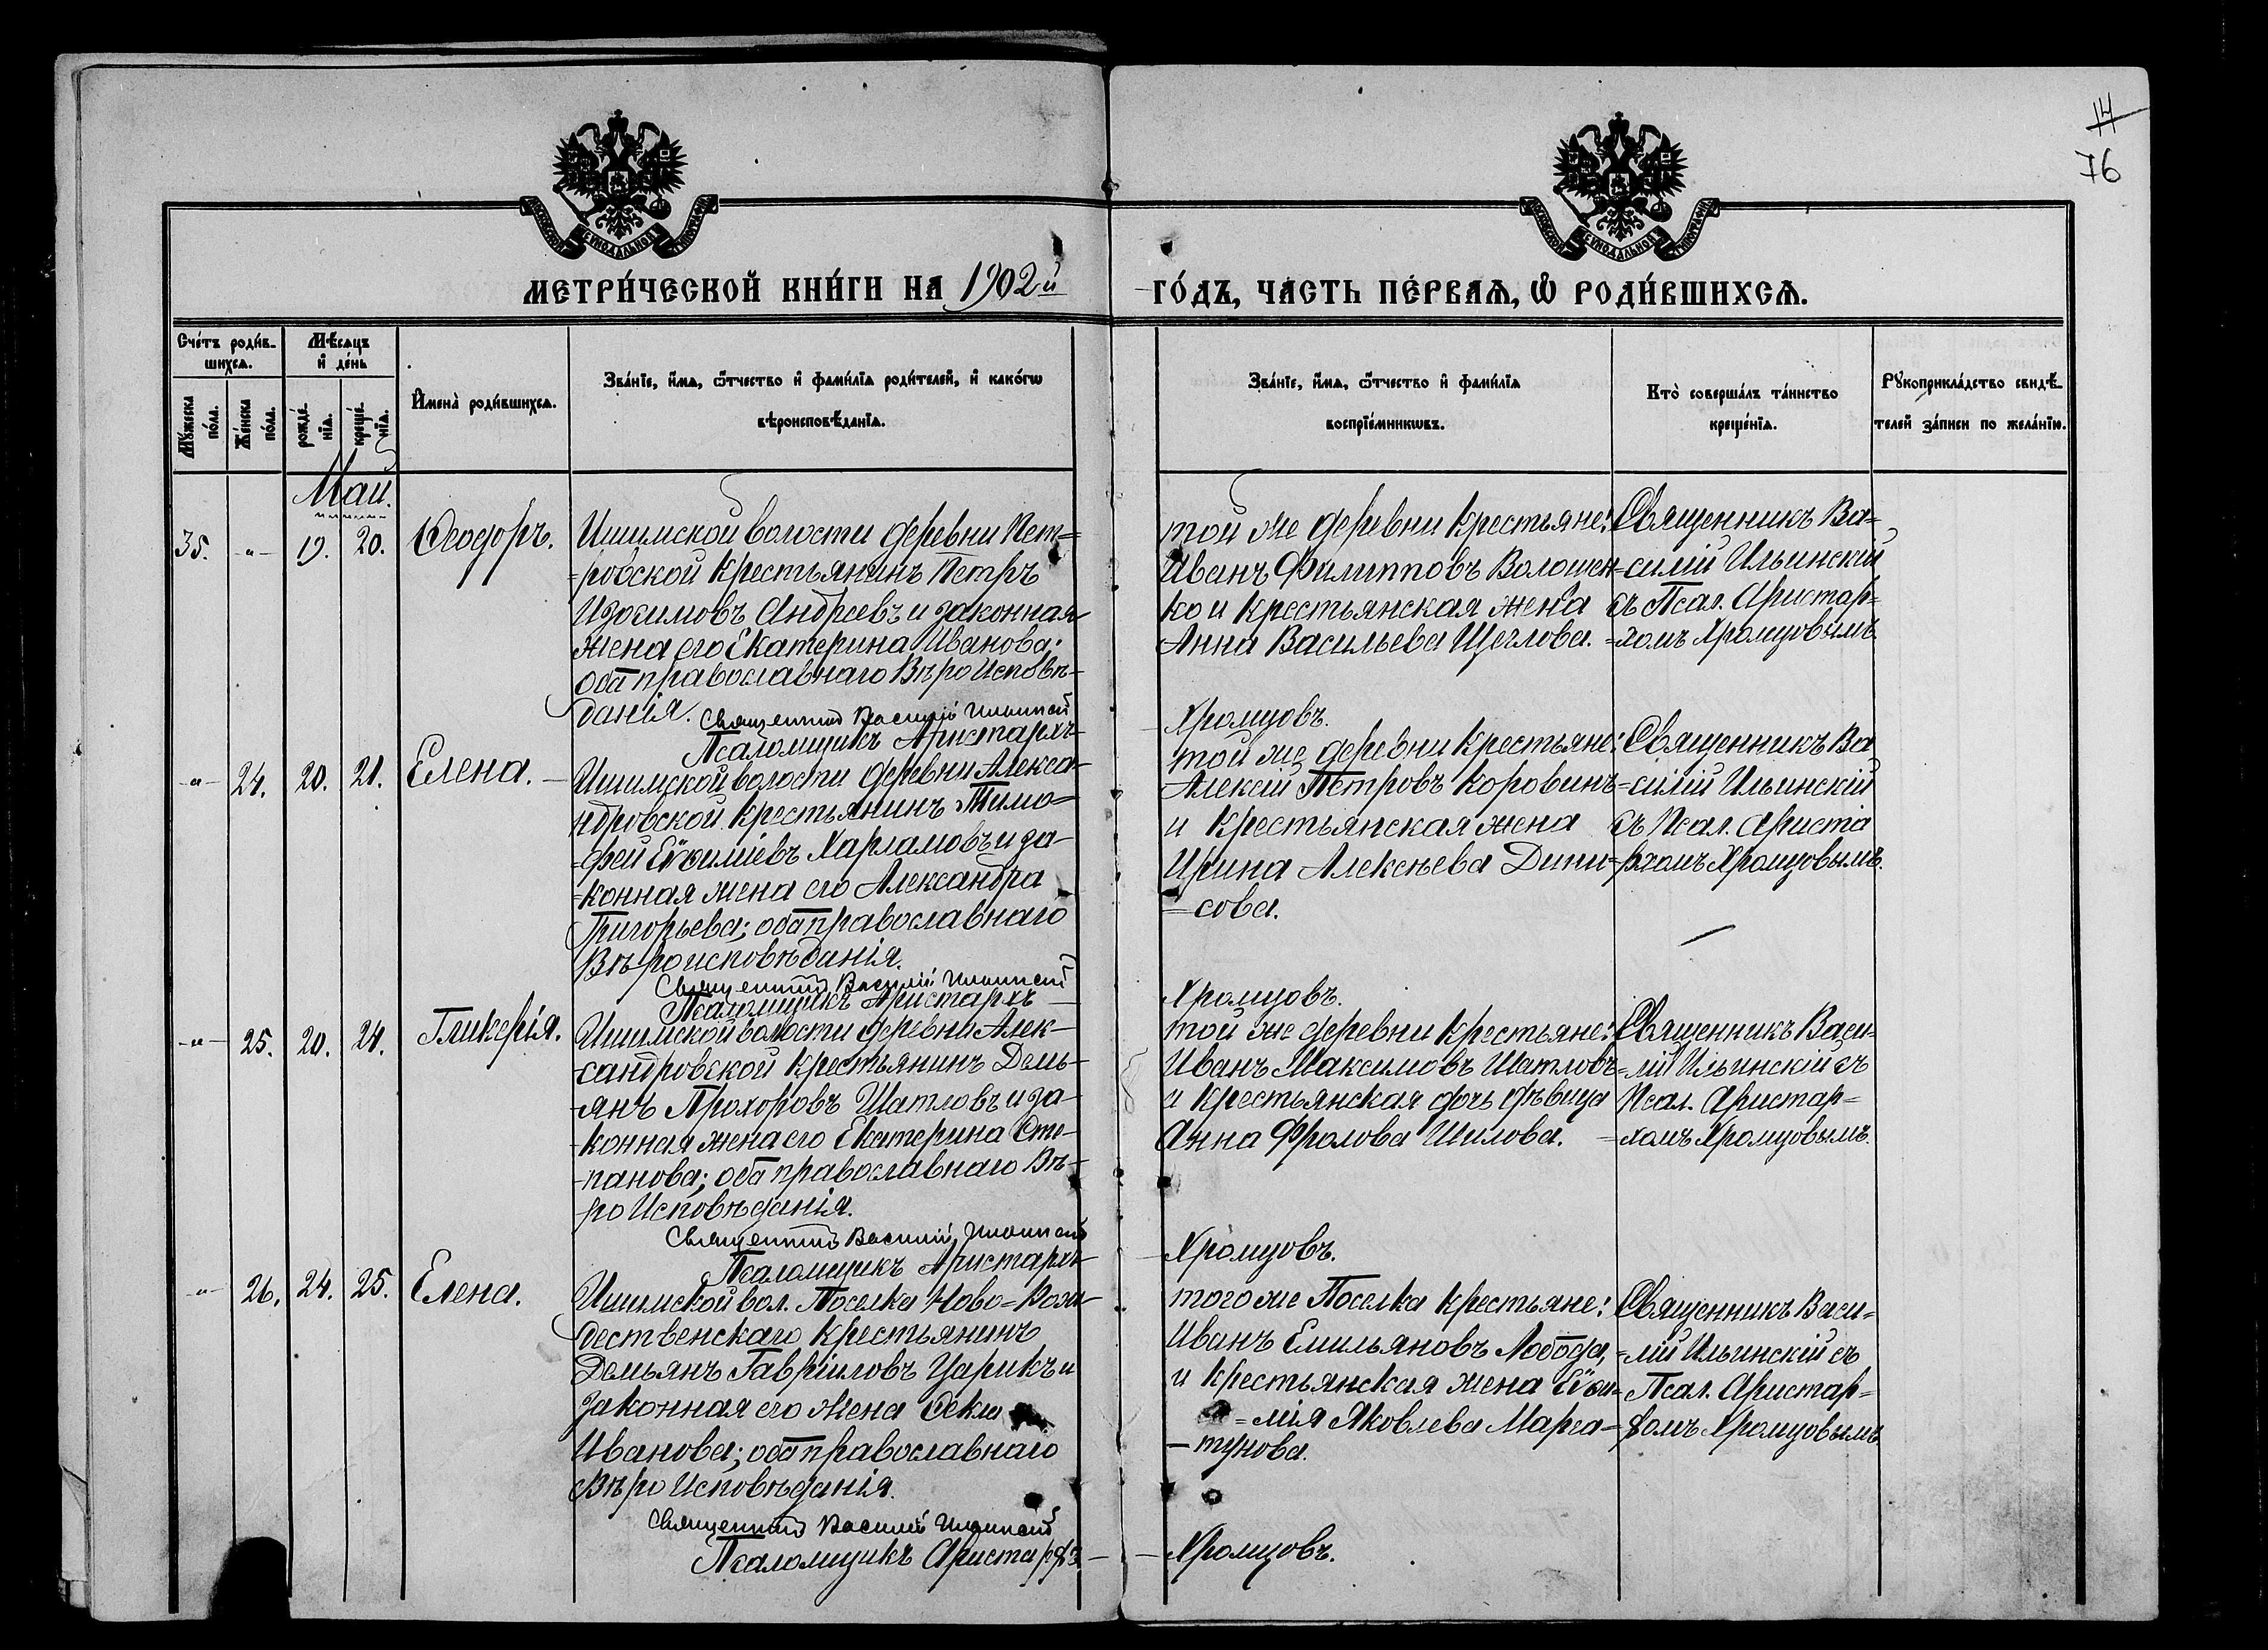 14
76
МОСКОВСКОЙ СѴНОДАЛЬНОЙ ТѴПОГРАФІИ
МОСКОВСКОЙ СѴНОДАЛЬНОЙ ТѴПОГРАФІИ
МЕТРИ́ЧЕСКОЙ КНИ́ГИ НА 1902й ГО́ДЪ, ЧА́СТЬ ПЕ́РВАѦ, Ѽ РОДИ́ВШИХСѦ.
Сче́тъ роди́в-
шихсѧ.
Мꙋ́жеска
по́ла.
Же́нска
по́ла.
Мѣ́сяцъ
и҆ де́нь
рожде́-
нїѧ.
креще́-
нїѧ.
И҆мена̀ роди́вшихсѧ.
Зва́нїе, и҆́мѧ, ѻ҆́тчество и҆ фами́лїѧ роди́телей, и҆ како́гѡ
вѣроисповѣ́данїѧ.
Зва́нїе, и҆́мѧ, ѻ҆́тчество и҆ фами́лїѧ
воспрїе́мникѡвъ.
Кто̀ соверша́лъ та́инство
креще́нїѧ.
Рꙋкоприкла́дство свидѣ́-
телей за́писи по жела́нїю.
Май.
35. -"- 19. 20. Ѳеодоръ.
Ишимской волости деревни Пет=
=ровской крестьянинъ Петръ
Изосимовъ Андреевъ и законная
жена его Екатерина Иванова;
оба православнаго ВѣроИсповѣ-
данія. Священникъ Василій Ильинскій
Псаломщикъ Аристархъ-
той же деревни крестьяне:
Иванъ Филипповъ Волошен-
ко и крестьянская жена
Анна Васильева Щеглова.
Хромцовъ.
Священникъ Ва=
=силій Ильинскій
съ Псал. Аристар=
=хомъ Хромцовымъ
-"- 24. 20. 21. Елена.
Ишимской волости деревни Алекса-
ндровской крестьянинъ Тимо=
=фей Евѳиміевъ Харламовъ и за-
=конная жена его Александра
Григорьева; оба православнаго
Вѣроисповѣданія.
Священникъ Василій Ильинскій
Псаломщикъ Аристархъ
той же деревни крестьяне:
Алексій Петровъ Коровинъ
и крестьянская жена
Ирина Алексѣева Дени=
=сова.
Хромцовъ.
Священникъ Ва
=силій Ильинскій
съ Псал. Ариста
рхомъ Хромцовымъ.
-"- 25. 20. 24. Гликерія.
Ишимской волости деревни Алек-
-сандровской крестьянинъ Демь-
-янъ Прохоровъ Шатловъ и за-
-конная жена его Екатерина Сте-
-панова; оба православнаго Вѣ-
-роИсповѣданія.
Священникъ Василій Ильинскій
Псаломщикъ Аристархъ
той же деревни крестьяне:
Иванъ Максимовъ Шатловъ
и крестьянская дочь дѣвица
Анна Фролова Шилова.
Хромцовъ.
Священникъ Васи-
=лій Ильинскій съ
Псал. Аристар=
=хомъ Хромцовымъ.
-"- 26. 24. 25. Елена.
Ишимской вол. Поселка Ново=Рож-
дественскаго крестьянинъ
Демьянъ Гавріиловъ Царикъ и
законная его жена Ѳекла
Иванова; оба православнаго
ВѣроИсповѣданія.
Священникъ Василій Ильинскій
Псаломщикъ Аристарфъ-
того же Поселка крестьяне:
Иванъ Емильяновъ Лобода,
и крестьянская жена Евѳи=
=мія Яковлева
-тунова.
-Хромцовъ.
Священникъ Васи=
=лій Ильинскій съ
Псал. Аристар=
фомъ Хромцовымъ